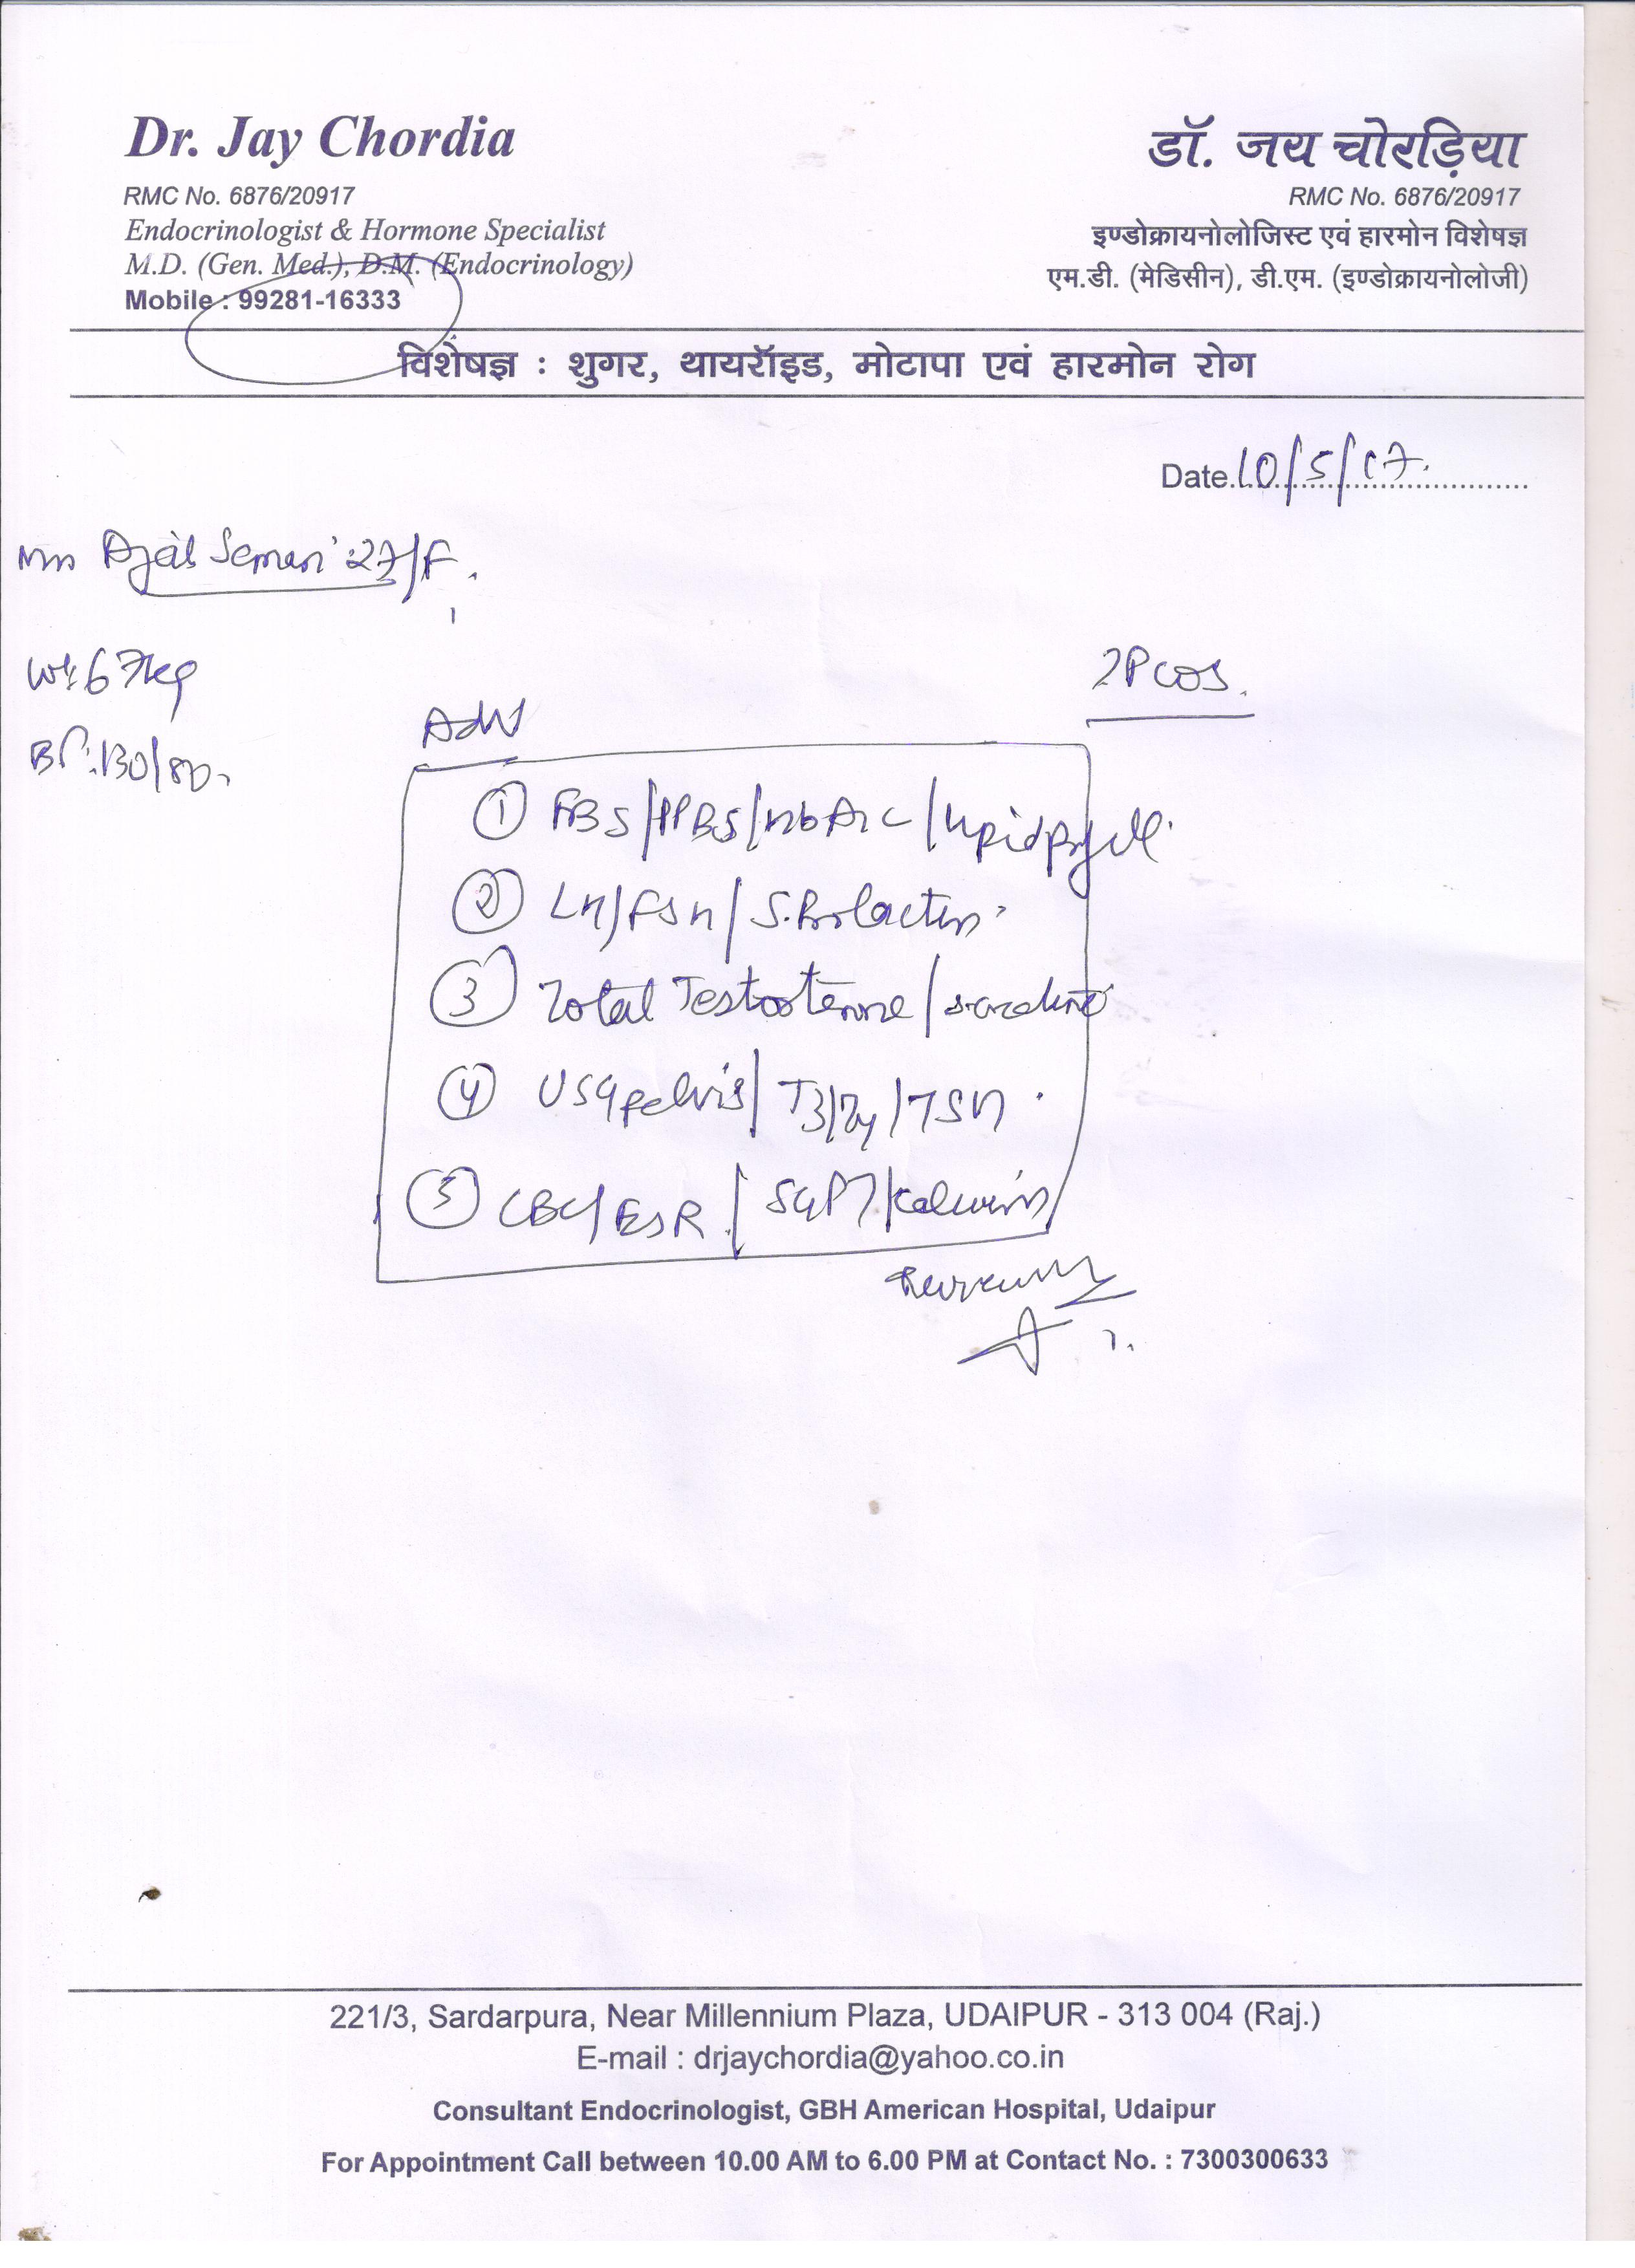 Dr. Jay Chordia
RMC No. 6876/20917
Endocrinologist & Hormone Specialist
M.D. (Gen. Med.), D.M. (Endocrinology)
Mobile : 99281-16333
डॉ. जय चोरड़िया
RMC No. 6876/20917
इण्डोक्रायनोलोजिस्ट एवं हारमोन विशेषज्ञ
एम.डी. (मेडिसीन), डी.एम. (इण्डोक्रायनोलोजी)
विशेषज्ञ : शुगर, थायरॉइड, मोटापा एवं हारमोन रोग
Date 10/5/17.
27/F.
Wt: 67kg
?PCOS.
BP: 130/80.
Adv
① FBS/PPBS/HbA1C/Lipid profile
② LH/FSH/S.Prolactin
③ Total Testosterone/S.Creatinine
④ USG pelvis/T3/T4/TSH.
⑤ CBC/ESR/SGPT/
221/3, Sardarpura, Near Millennium Plaza, UDAIPUR - 313 004 (Raj.)
E-mail : drjaychordia@yahoo.co.in
Consultant Endocrinologist, GBH American Hospital, Udaipur
For Appointment Call between 10.00 AM to 6.00 PM at Contact No. : 7300300633